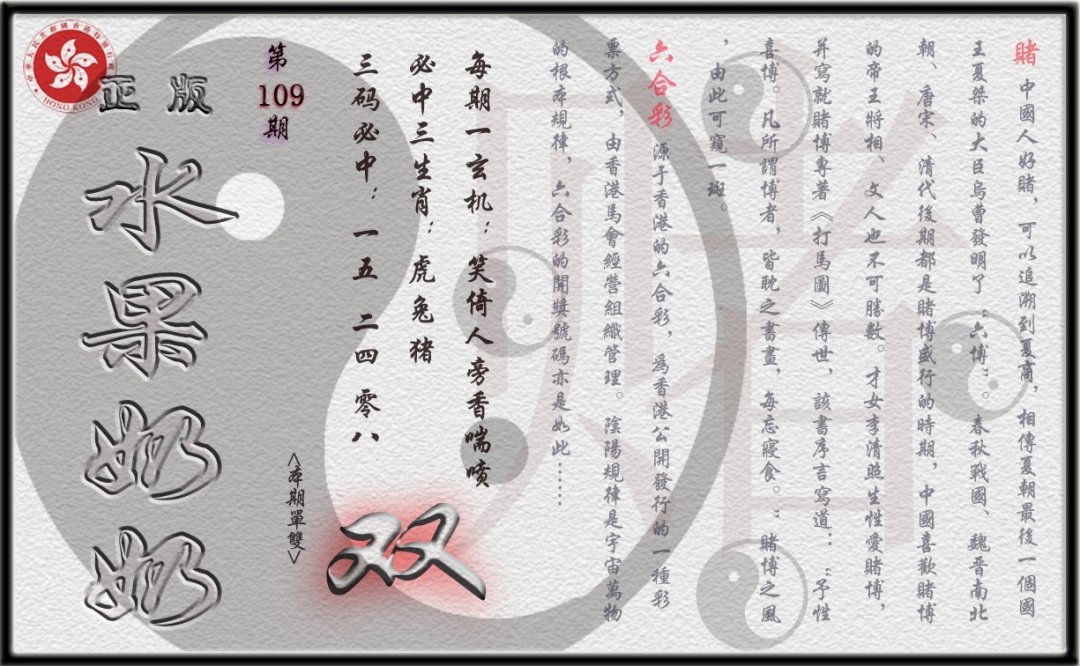 賭 中國人好賭，可以追溯到夏商，相傳夏朝最後一個國
王夏桀的大臣烏曹發明了“六博”。春秋戰國、魏晋南北
朝、唐宋、清代後期都是賭博盛行的時期，中國喜歡賭博
的帝王將相、文人也不可勝數。才女李清照生性愛賭博，
并寫就賭博專著《打馬圖》傳世，該書序言寫道：“予性
喜博。凡所謂博者，皆耽之書晝，每忘寢食。”賭博之風
，由此可窺一斑。
六合彩 源于香港的六合彩，爲香港公開發行的一種彩
票方式，由香港馬會經營組織管理。陰陽規律是宇宙萬物
的根本規律，六合彩的開獎號碼亦是如此……
每期一玄机：笑倚人旁香喘喷
必中三生肖：虎兔猪
三码必中：一五 二四 零八
第
109
期
<本期單雙>
双
正版
水果奶奶
HONG KONG